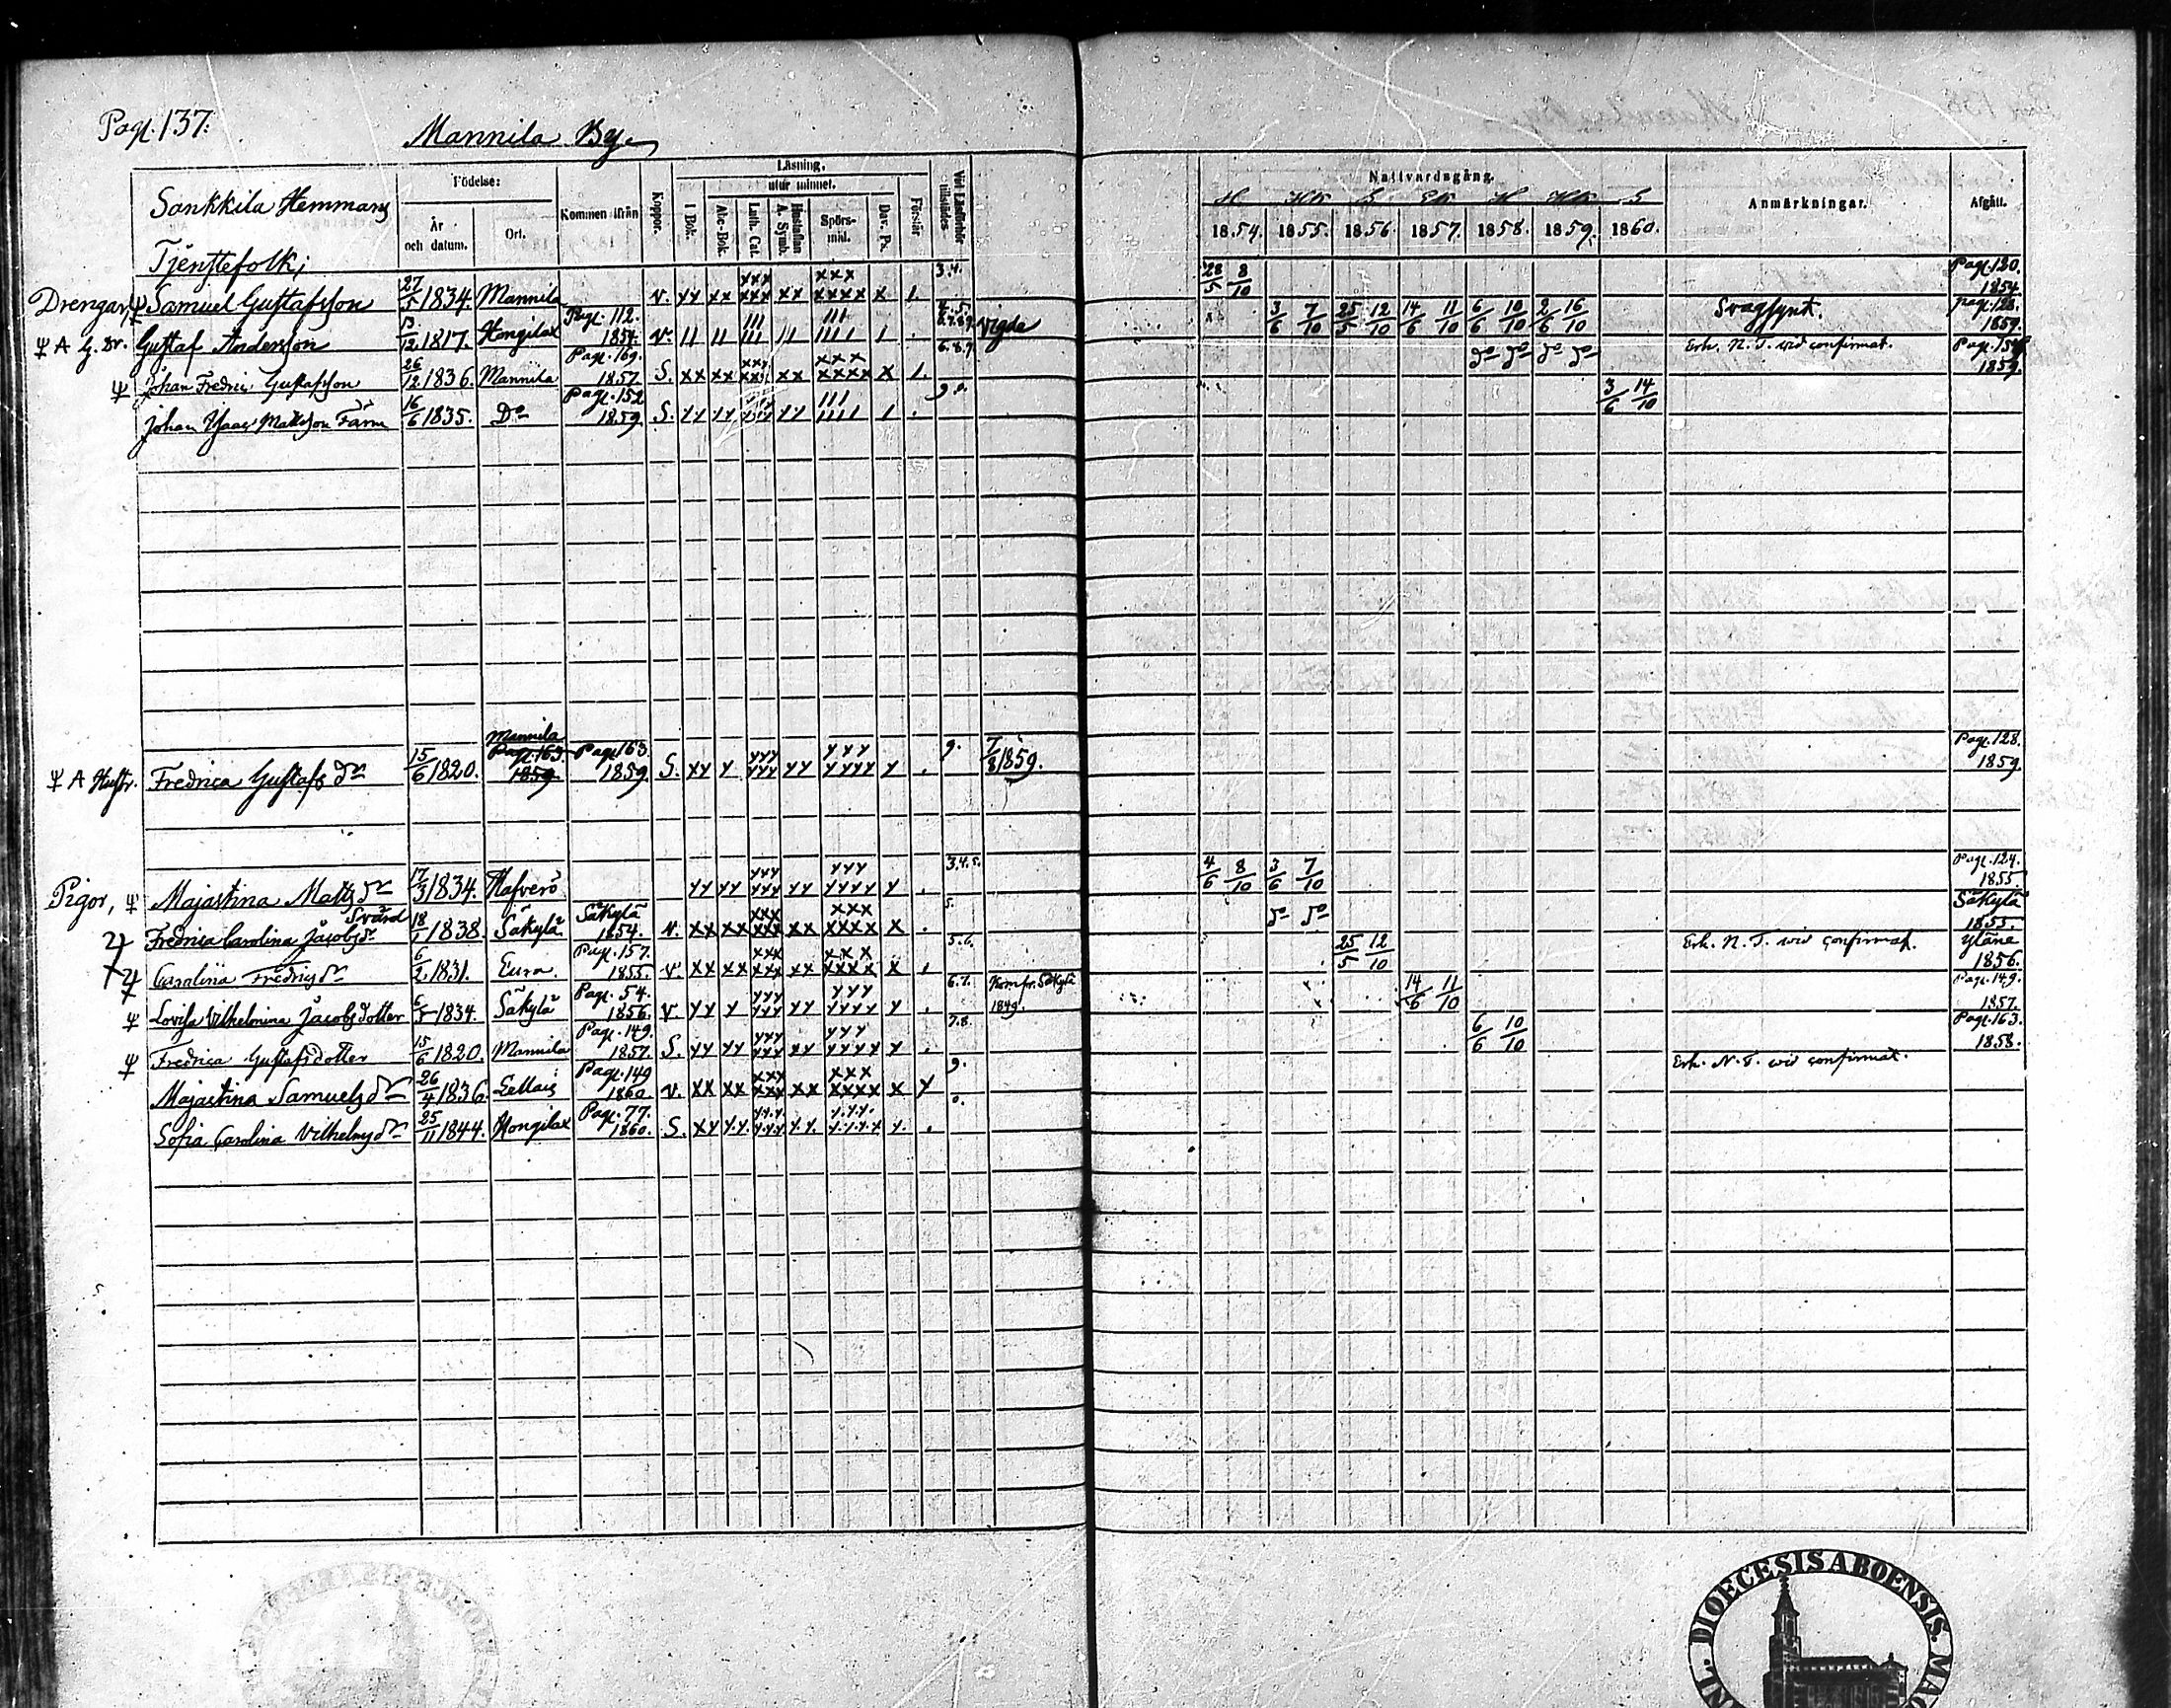 Pag. 137.
Mannila By.
Sankkila Hemmans
Födelse:
År och datum.
Ort.
Kommen ifrån
Koppor.
Läsning,
utur minnet.
I Bok.
Abc-Bok.
Luth. Cat.
Hustaflan A. Symb.
Spörs-mål.
Dav. Ps.
Förstår
Vid Läsförhör tillstädes
Nattvardsgång.
1854. 1855. 1856. 1857. 1858. 1859. 1860.
Anmärkningar.
Afgått.
Tjenstefolk;
Drengar, Samuel Gustafsson 27/5 1834. Mannila v. xx xx xxx xxx xx xxx xxxx x 1. 3.4. 28/5 8/10 Pag. 130. 1854.
A G. Dr. Gustaf Andersson 13/12 1817. Hongilax Pag. 112. 1854. v. 11 11 111 111 11 111 1111 1 . Vigde 3/6 7/10 25/5 12/10 14/6 11/10 6/6 10/10 2/6 16/10 Svagsynt. pag. 128. 1859.
Johan Fredric Gustafsson 26/12 1836. Mannila Pag. 169. 1857. S. xx xx xxx xxx xx xxx xxxx x 1. 6.8.9 do do do do Erh. N. T. wid confirmat. 1859.
Johan Isaac Mattsson Färm 16/6 1835. Do Pag. 152 1859 S. 111 1111 1 . 9.0. 3/6 14/10
A Hustr. Fredrica Gustafs dr 15/6 1820. Mannila Pag. 163. 1859. Pag. 163. 1859. S. xy y yyy yyy yy yyy yyyy y . 9. 7/8 1859. Pag. 128. 1859.
Pigor, Majastina Matts dr 17/3 1834. Hafverö yy yy yyy yyy yy yyy yyyy y . 3.4.5. 4/6 8/10 3/6 7/10 Pag. 124. 1855.
Fredrica Carolina Jacobs dr Svärd 18/1 1838. Säkylä Säkylä 1854. v. xx xx xxx xxx xx xxx xxxx x . 5. do do Säkylä 1855.
Carolina Fredrics dr 6/2 1831. Eura. Pag. 157. 1855. v. xx xx xxx xxx xx xxx xxxx x . 5.6. 25/5 12/10 Erh. N. T. wid confirmat. Yläne 1856.
Lovisa Vilhelmina Jacobsdotter 1834. Säkylä Pag. 54. 1856. v. yy y yyy yyy yy yyy yyyy y . 6.7. Komfr. Säkylä 1849. 14/6 11/10 Pag. 149. 1857.
Fredrica Gustafsdotter 15/6 1820. Mannila Pag. 149. 1857. S. yy yy yyy yyy yy yyy yyyy y . 7.8. 6/6 10/10 Pag. 163. 1858.
Majastina Samuels dr 26/4 1836. Lellais Pag. 149 1860. v. xx xx xxx xxx xx xxx xxxx x y 9. Erh. N. T. wid confirmat.
Sofia Carolina Vilhelms dr 25/11 1844. Hongilax Pag. 77. 1860. S. xy y.y. y.y.y. yyy y.y. y.y.y. y.y.y.y y. . 0.
DIOECESIS ABOENSIS.